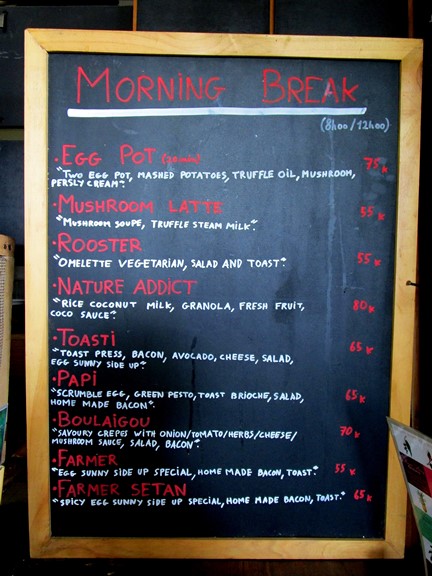 MORNING BREAK
(8h00/12h00)
• EGG POT (20min) 75K
"TWO EGG POT, MASHED POTATOES, TRUFFLE OIL, MUSHROOM,
PERSLY CREAM".
• MUSHROOM LATTE 55K
"MUSHROOM SOUPE, TRUFFLE STEAM MILK".
• ROOSTER 55K
"OMELETTE VEGETARIAN, SALAD AND TOAST".
• NATURE ADDICT 80K
"RICE COCONUT MILK, GRANOLA, FRESH FRUIT,
COCO SAUCE".
• TOASTI 65K
"TOAST PRESS, BACON, AVOCADO, CHEESE, SALAD,
EGG SUNNY SIDE UP".
• PAPI 65K
"SCRUMBLE EGG, GREEN PESTO, TOAST BRIOCHE, SALAD,
HOME MADE BACON".
• BOULAIGOU 70K
"SAVOURY CREPES WITH ONION/TOMATO/HERBS/CHEESE/
MUSHROOM SAUCE, SALAD, BACON".
• FARMER 55K
"EGG SUNNY SIDE UP SPECIAL, HOME MADE BACON, TOAST."
• FARMER SETAN 65K
"SPICY EGG SUNNY SIDE UP SPECIAL, HOME MADE BACON, TOAST."